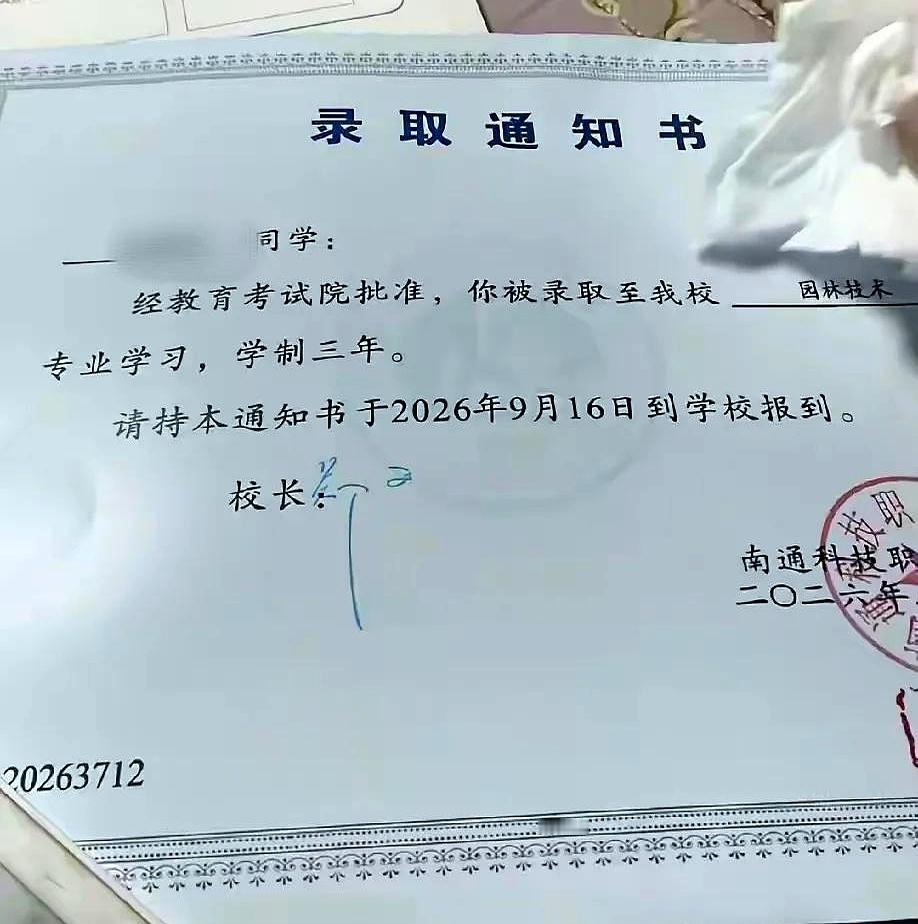 录取通知书
同学：
经教育考试院批准，你被录取至我校 园林技术
专业学习，学制三年。
请持本通知书于2026年9月16日到学校报到。
校长：
南通科技职
二〇二六年
20263712